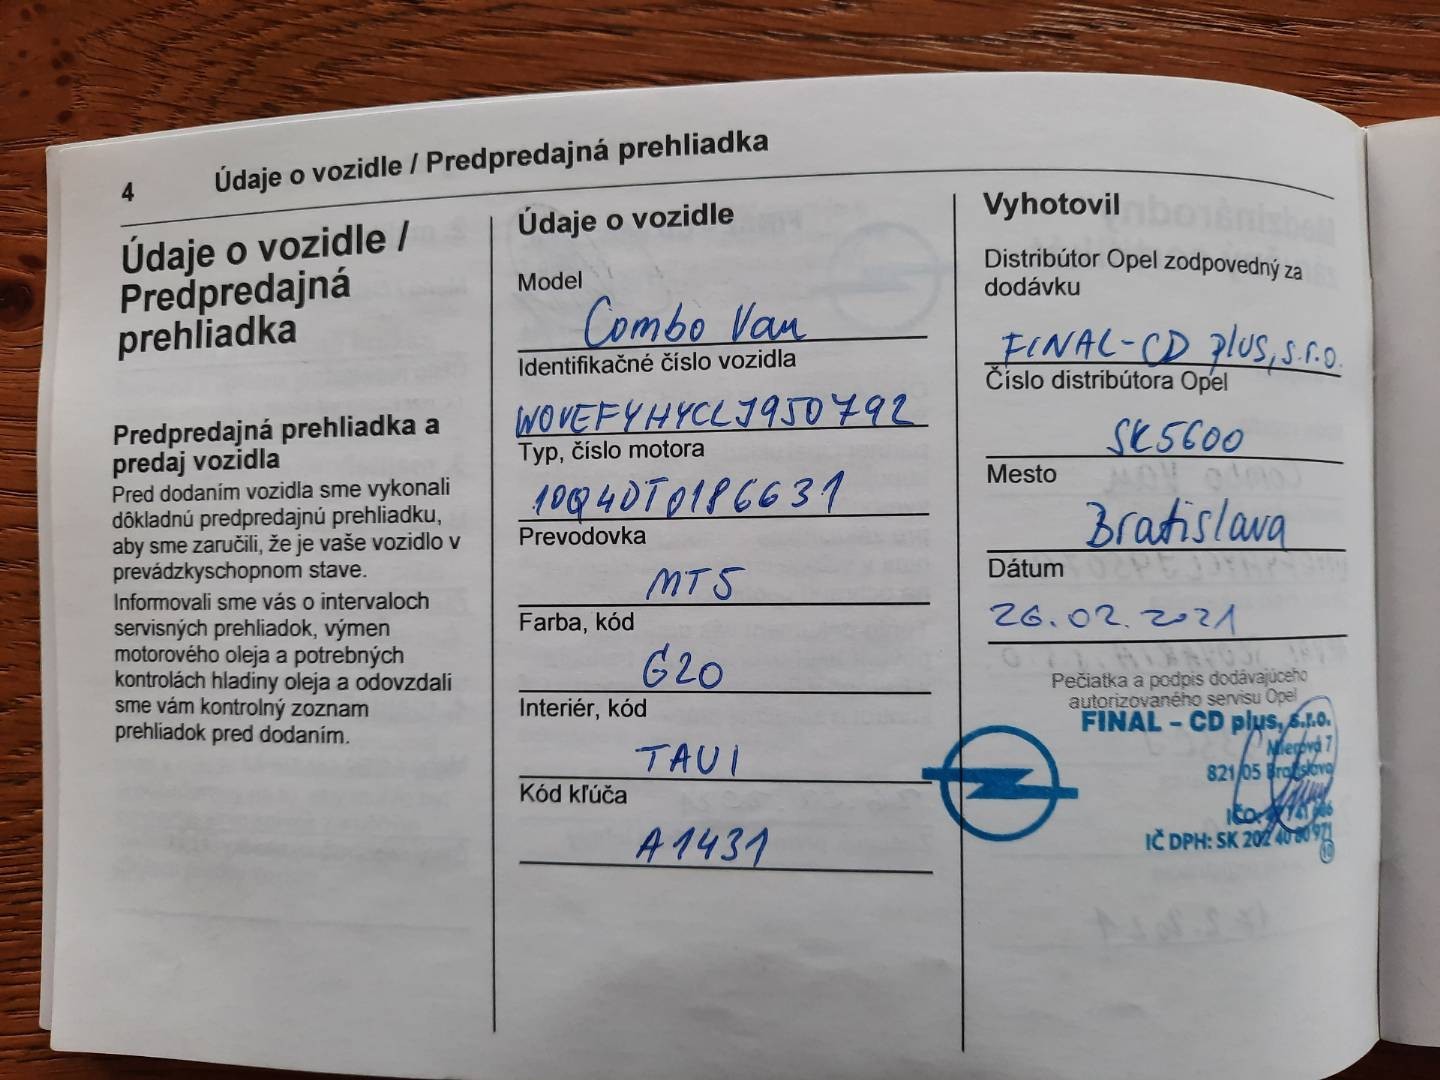 4
Údaje o vozidle / Predpredajná prehliadka
Údaje o vozidle /
Predpredajná
prehliadka
Predpredajná prehliadka a
predaj vozidla
Pred dodaním vozidla sme vykonali
dôkladnú predpredajnú prehliadku,
aby sme zaručili, že je vaše vozidlo v
prevádzkyschopnom stave.
Informovali sme vás o intervaloch
servisných prehliadok, výmen
motorového oleja a potrebných
kontrolách hladiny oleja a odovzdali
sme vám kontrolný zoznam
prehliadok pred dodaním.
Údaje o vozidle
Model
Combo Van
Identifikačné číslo vozidla
W0VEFYHYCLJ950792
Typ, číslo motora
10Q4DT0186631
Prevodovka
MT5
Farba, kód
G20
Interiér, kód
TAU1
Kód kľúča
A1431
Vyhotovil
Distribútor Opel zodpovedný za
dodávku
FINAL-CD plus, s.r.o.
Číslo distribútora Opel
SK5600
Mesto
Bratislava
Dátum
26.02.2021
Pečiatka a podpis dodávajúceho
autorizovaného servisu Opel
FINAL - CD plus, s.r.o.
Mierová 7
821 05 Bratislava
IČO:
IČ DPH: SK 202 40 80 971
10